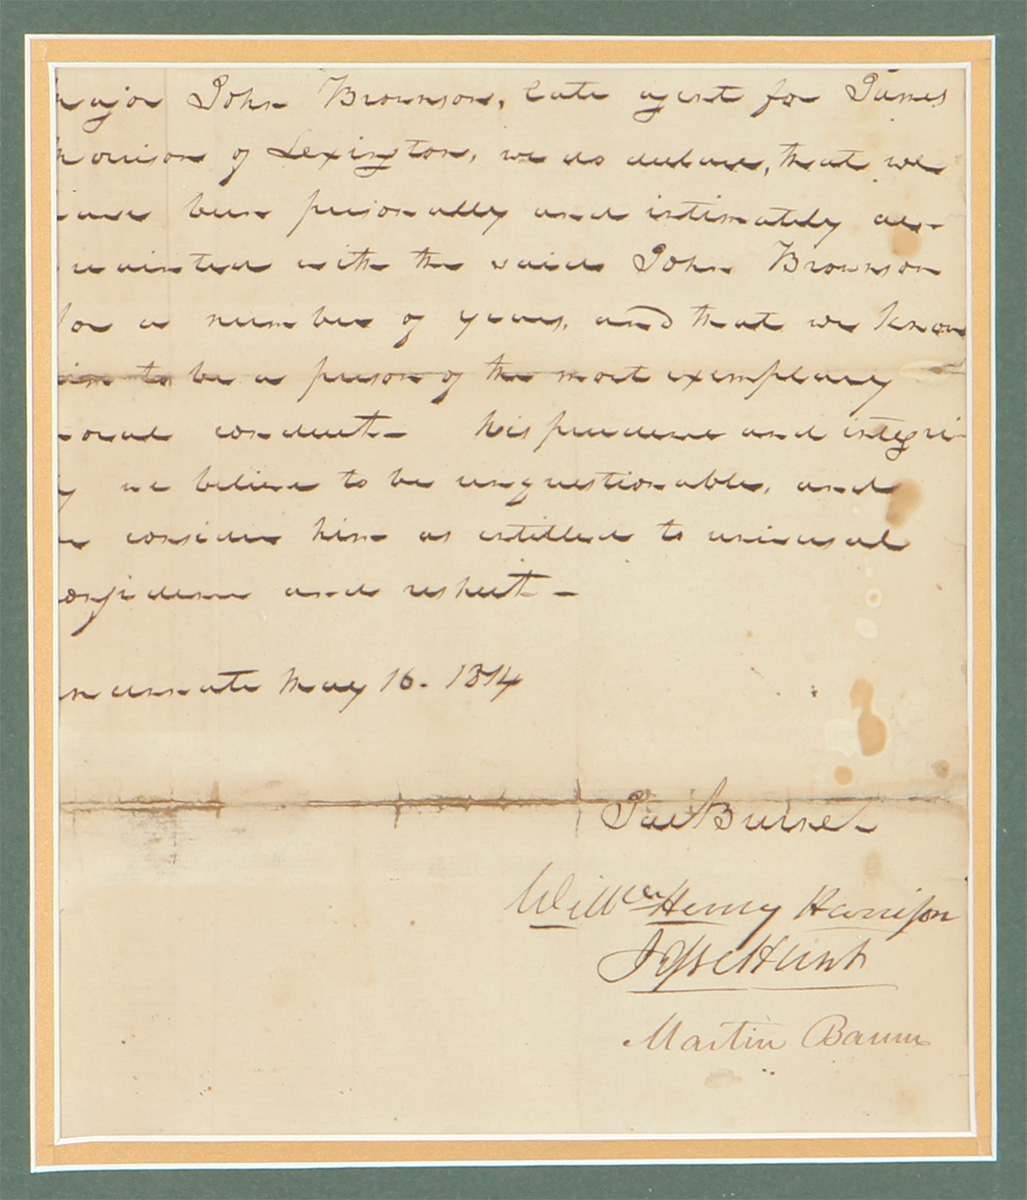 major John Brownson, late agent for James
Morrison of Lexington, we do declare, that we
have been personally and intimately ac-
quainted with the said John Brownson
for a number of years, and that we know
him to be a person of the most exemplary
moral conduct - his prudence and integri-
ty we believe to be unquestionable, and
we consider him as intitled to universal
confidence and respect -
incinnati May 16. 1814
Jac Burnet
Willm Henry Harrison
Jesse Hunt
Martin Baum